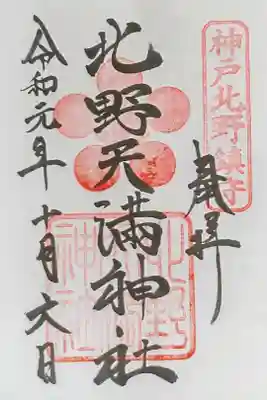 神戸北野鎮守
奉拝
北野天満神社
北野天満神社
令和元年十月六日